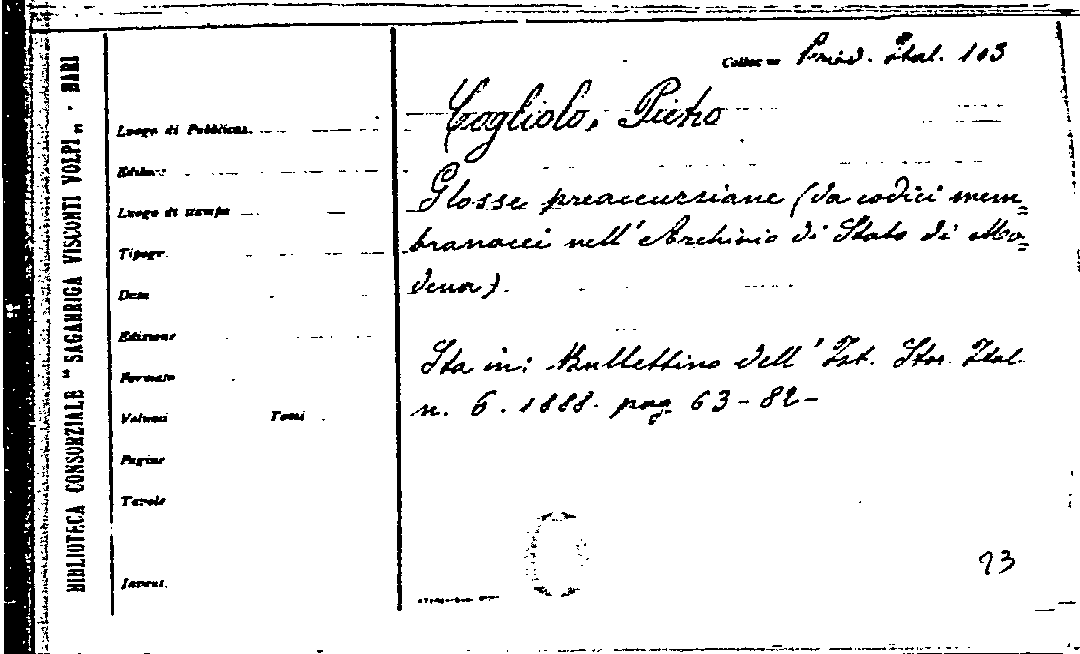 BIBLIOTECA CONSORZIALE "SAGARRIGA VISCONTI VOLPI„ - BARI
Colloc.ne Period. Ital. 103
Cogliolo, Pietro
Glosse preaccursiane (da codici mem=
branacei nell'Archivio di Stato di Mo=
dena).
Sta in: Bullettino dell'Ist. Stor. Ital.
n. 6. 1888. pag. 63-82-
Luogo di Pubblicaz.
Editore
Luogo di stampa
Tipogr.
Data
Edizione
Formato
Volumi Tomi
Pagine
Tavole
Invent.
C
23